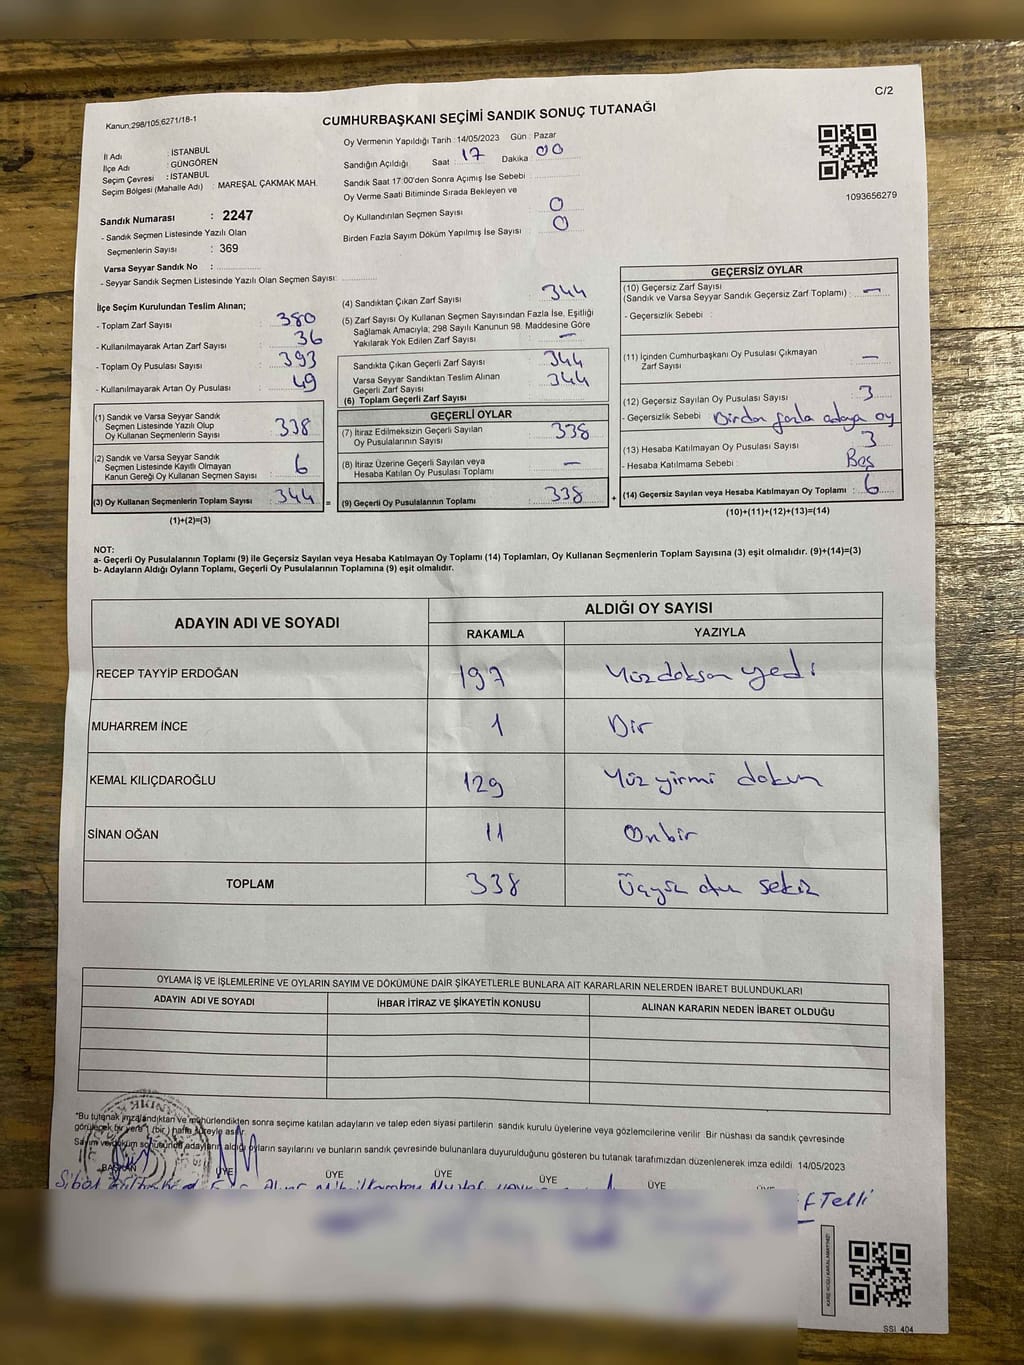 C/2
Kanun;298/105,6271/18-1
CUMHURBAŞKANI SEÇİMİ SANDIK SONUÇ TUTANAĞI
İl Adı : İSTANBUL
İlçe Adı : GÜNGÖREN
Seçim Çevresi : İSTANBUL
Seçim Bölgesi (Mahalle Adı) : MAREŞAL ÇAKMAK MAH.
Sandık Numarası : 2247
- Sandık Seçmen Listesinde Yazılı Olan
Seçmenlerin Sayısı : 369
Varsa Seyyar Sandık No :
- Seyyar Sandık Seçmen Listesinde Yazılı Olan Seçmen Sayısı:
Oy Vermenin Yapıldığı Tarih :14/05/2023 Gün : Pazar
Sandığın Açıldığı Saat : 17 Dakika 00
Sandık Saat 17:00'den Sonra Açımış İse Sebebi :
Oy Verme Saati Bitiminde Sırada Bekleyen ve
Oy Kullandırılan Seçmen Sayısı : 0
Birden Fazla Sayım Döküm Yapılmış İse Sayısı : 0
1093656279
İlçe Seçim Kurulundan Teslim Alınan;
- Toplam Zarf Sayısı : 380
- Kullanılmayarak Artan Zarf Sayısı : 36
- Toplam Oy Pusulası Sayısı : 393
- Kullanılmayarak Artan Oy Pusulası : 49
(1) Sandık ve Varsa Seyyar Sandık
Seçmen Listesinde Yazılı Olup
Oy Kullanan Seçmenlerin Sayısı : 338
(2) Sandık ve Varsa Seyyar Sandık
Seçmen Listesinde Kayıtlı Olmayan
Kanun Gereği Oy Kullanan Seçmen Sayısı : 6
(3) Oy Kullanan Seçmenlerin Toplam Sayısı : 344 =
(1)+(2)=(3)
(4) Sandıktan Çıkan Zarf Sayısı : 344
(5) Zarf Sayısı Oy Kullanan Seçmen Sayısından Fazla İse, Eşitliği
Sağlamak Amacıyla; 298 Sayılı Kanunun 98. Maddesine Göre
Yakılarak Yok Edilen Zarf Sayısı : —
Sandıkta Çıkan Geçerli Zarf Sayısı : 344
Varsa Seyyar Sandıktan Teslim Alınan
Geçerli Zarf Sayısı : 344
(6) Toplam Geçerli Zarf Sayısı
GEÇERLİ OYLAR
(7) İtiraz Edilmeksizin Geçerli Sayılan
Oy Pusulalarının Sayısı : 338
(8) İtiraz Üzerine Geçerli Sayılan veya
Hesaba Katılan Oy Pusulası Toplamı : —
(9) Geçerli Oy Pusulalarının Toplamı : 338 +
GEÇERSİZ OYLAR
(10) Geçersiz Zarf Sayısı
(Sandık ve Varsa Seyyar Sandık Geçersiz Zarf Toplamı) : —
- Geçersizlik Sebebi :
(11) İçinden Cumhurbaşkanı Oy Pusulası Çıkmayan
Zarf Sayısı : —
(12) Geçersiz Sayılan Oy Pusulası Sayısı : 3
- Geçersizlik Sebebi : Birden fazla adaya oy
(13) Hesaba Katılmayan Oy Pusulası Sayısı : 3
- Hesaba Katılmama Sebebi : Boş
(14) Geçersiz Sayılan veya Hesaba Katılmayan Oy Toplamı : 6
(10)+(11)+(12)+(13)=(14)
NOT:
a- Geçerli Oy Pusulalarının Toplamı (9) ile Geçersiz Sayılan veya Hesaba Katılmayan Oy Toplamı (14) Toplamları, Oy Kullanan Seçmenlerin Toplam Sayısına (3) eşit olmalıdır. (9)+(14)=(3)
b- Adayların Aldığı Oyların Toplamı, Geçerli Oy Pusulalarının Toplamına (9) eşit olmalıdır.
ADAYIN ADI VE SOYADI
ALDIĞI OY SAYISI
RAKAMLA YAZIYLA
RECEP TAYYİP ERDOĞAN 197 Yüz doksan yedi
MUHARREM İNCE 1 Bir
KEMAL KILIÇDAROĞLU 129 Yüz yirmi dokuz
SİNAN OĞAN 11 Onbir
TOPLAM 338 Üçyüz otuz sekiz
OYLAMA İŞ VE İŞLEMLERİNE VE OYLARIN SAYIM VE DÖKÜMÜNE DAİR ŞİKAYETLERLE BUNLARA AİT KARARLARIN NELERDEN İBARET BULUNDUKLARI
ADAYIN ADI VE SOYADI İHBAR İTİRAZ VE ŞİKAYETİN KONUSU ALINAN KARARIN NEDEN İBARET OLDUĞU
*Bu tutanak imzalandıktan ve mühürlendikten sonra seçime katılan adayların ve talep eden siyasi partilerin sandık kurulu üyelerine veya gözlemcilerine verilir. Bir nüshası da sandık çevresinde
görülecek bir yere 1 (bir) hafta süreyle asılır.
Sayım ve döküm sonucunda adayların aldığı oyların sayılarını ve bunların sandık çevresinde bulunanlara duyurulduğunu gösteren bu tutanak tarafımızdan düzenlenerek imza edildi. 14/05/2023
BAŞKAN ÜYE ÜYE ÜYE ÜYE ÜYE
Sibel
F Telli
SSİ 404